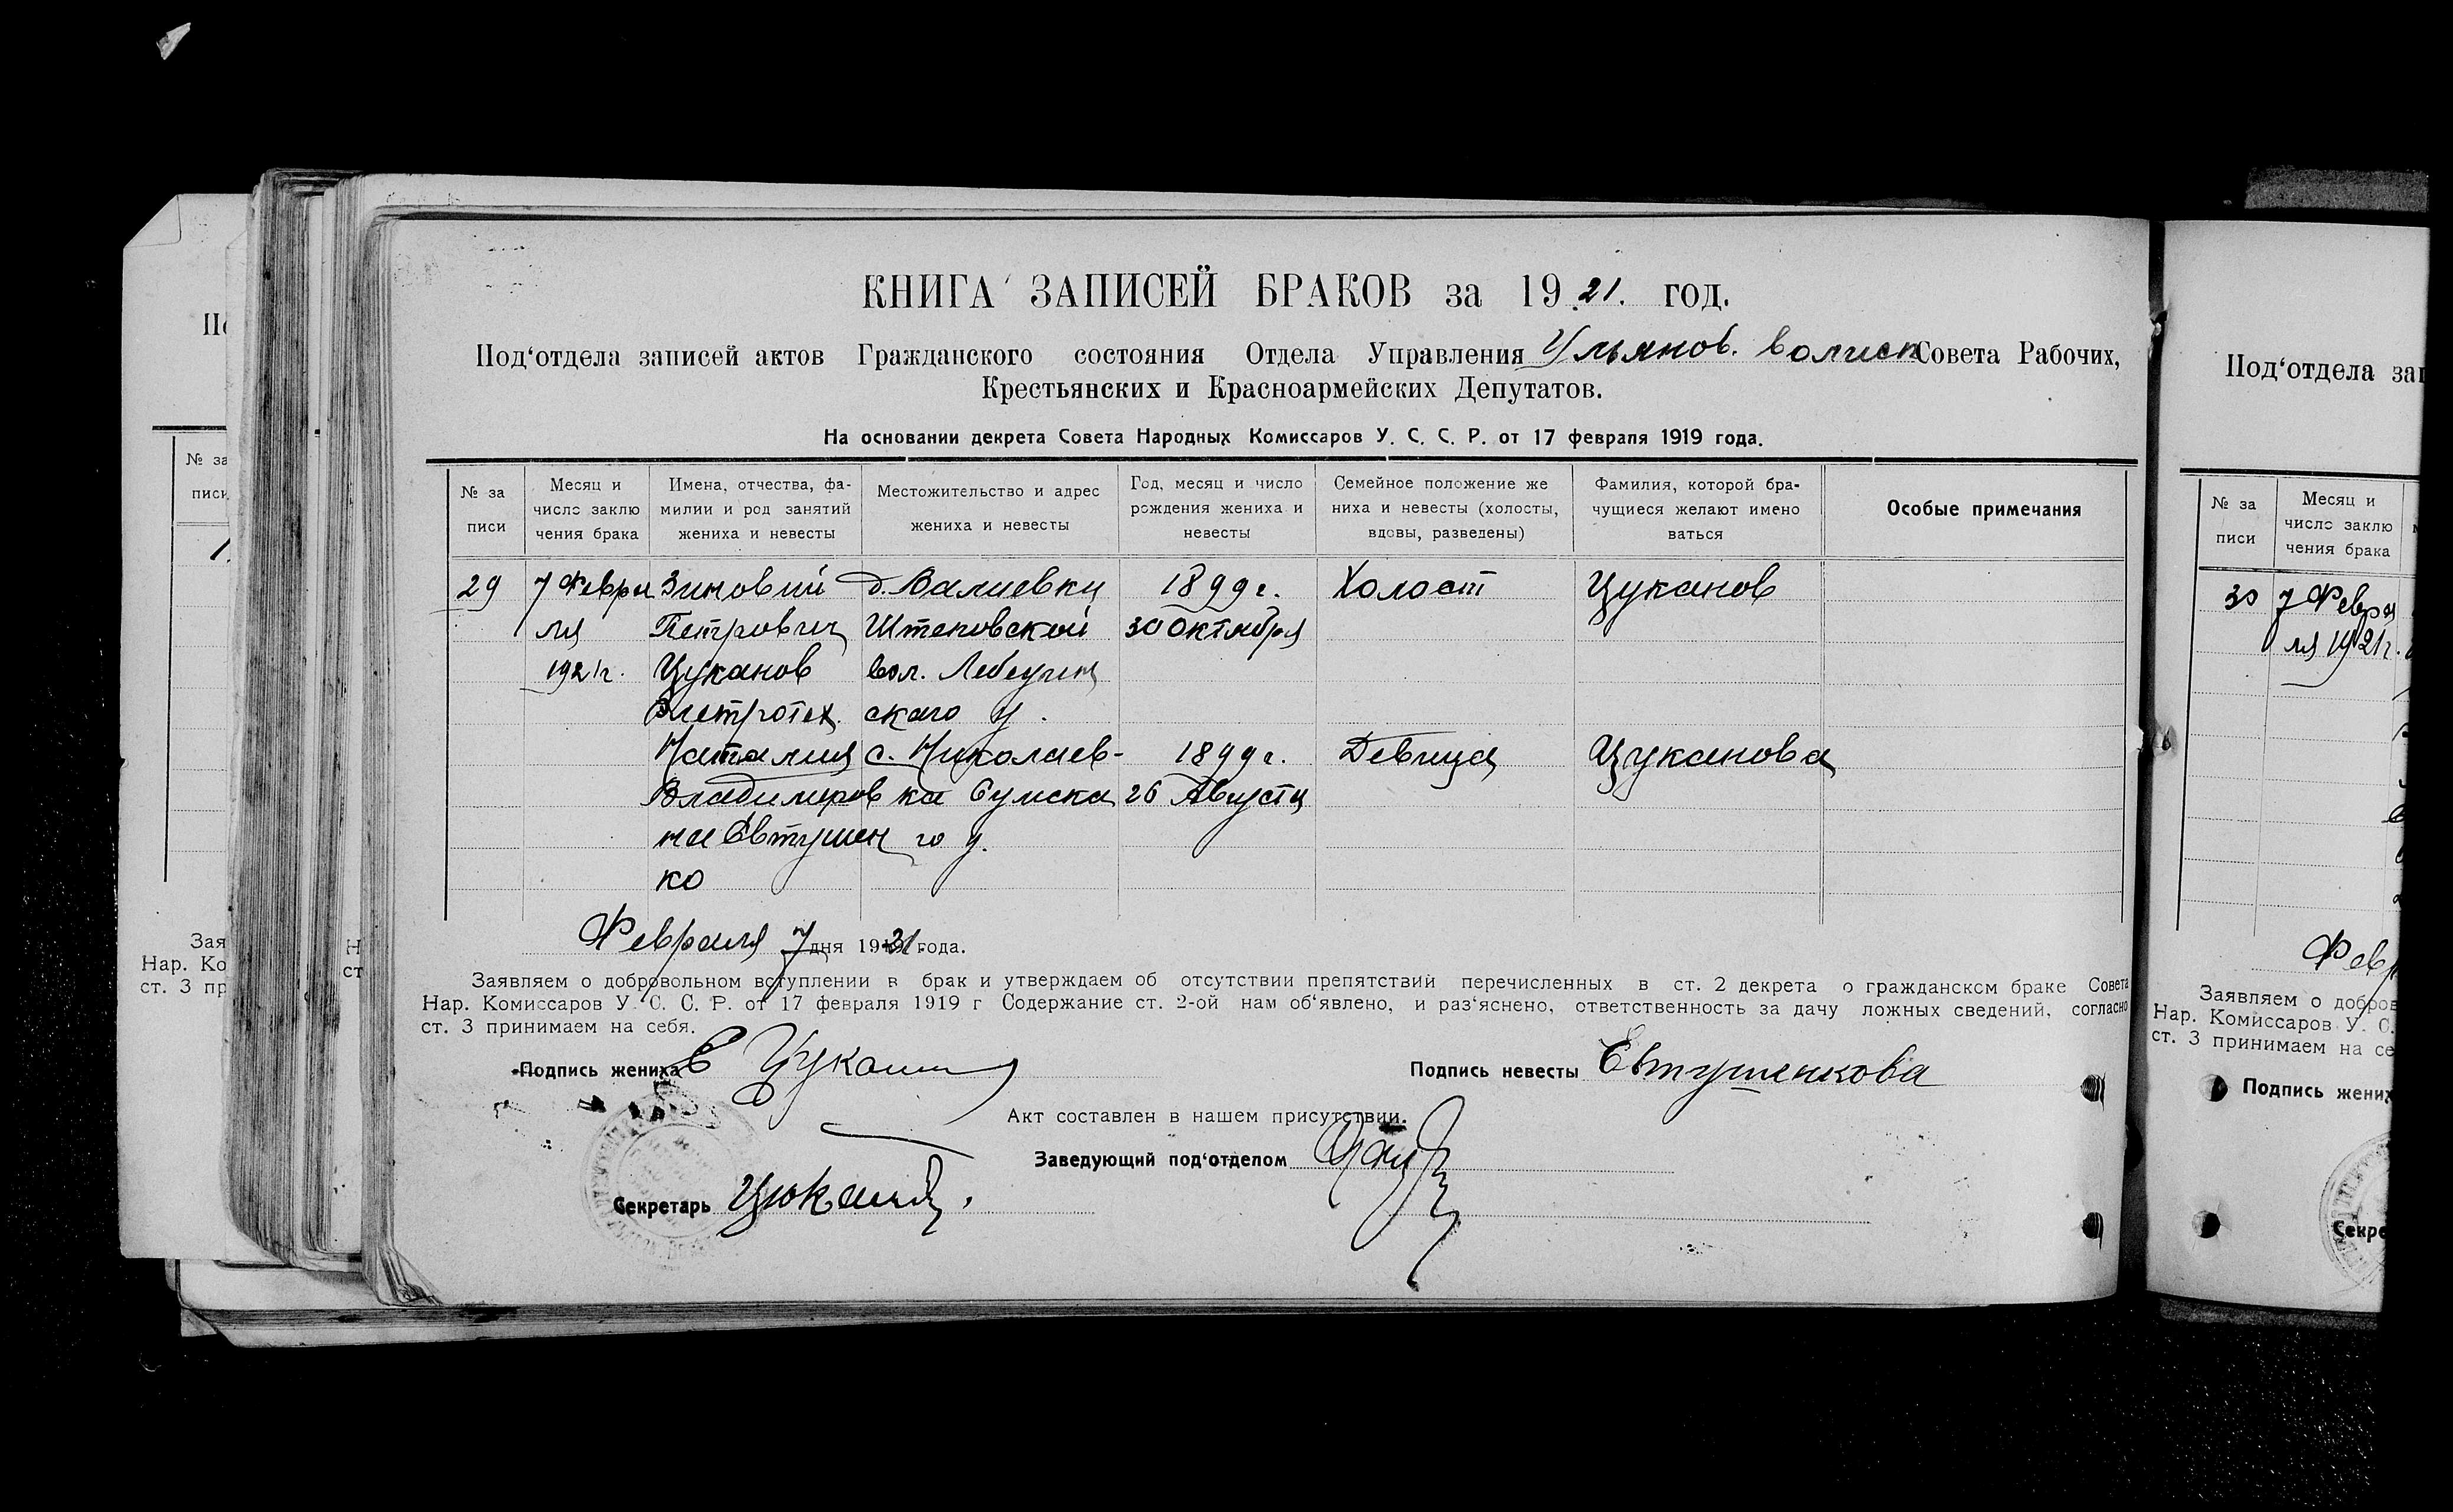 КНИГА ЗАПИСЕЙ БРАКОВ за 1921. год.
Под'отдела записей актов Гражданского состояния Отдела Управления Ульянов. волисп Совета Рабочих,
Крестьянских и Красноармейских Депутатов.
На основании декрета Совета Народных Комиссаров У. С. С. Р. от 17 февраля 1919 года.
№ за
писи
Месяц и
число заклю
чения брака
Имена, отчества, фа-
милии и род занятий
жениха и невесты
Местожительство и адрес
жениха и невесты
Год, месяц и число
рождения жениха и
невесты
Семейное положение же
ниха и невесты (холосты,
вдовы, разведены)
Фамилия, которой бра-
чущиеся желают имено
ваться
Особые примечания
29 7 Февра Зиновий д. Валиевки 1899 г. Холост Цуканов
ля Петрович Штеповской 30 Октября
1921 г. Цуканов вол. Лебедин
ского у.
Наталия с. Николаев- 1899 г. Девица Цуканова
Владимиров ка Сумска 26 Августа
на Евтушен го у.
ко
Февраля 7 дня 1921 года.
Заявляем о добровольном вступлении в брак и утверждаем об отсутствии препятствий перечисленных в ст. 2 декрета о гражданском браке Совета
Нар. Комиссаров У. С. С. Р. от 17 февраля 1919 г Содержание ст. 2-ой нам об'явлено, и раз'яснено, ответственность за дачу ложных сведений, согласно
ст. 3 принимаем на себя.
Подпись жениха
Подпись невесты Евтушенкова
Акт составлен в нашем присутствии.
Заведующий под'отделом
Секретарь
Под'отдела зап
№ за
писи
Месяц и
число заклю
чения брака
30 7 Февра
ля 1921 г.
Февр
Заявляем о добров
Нар. Комиссаров У. С.
ст. 3 принимаем на се
Подпись жених
Секре
№ за
писи
Зая
Нар. Ко
ст. 3 пр